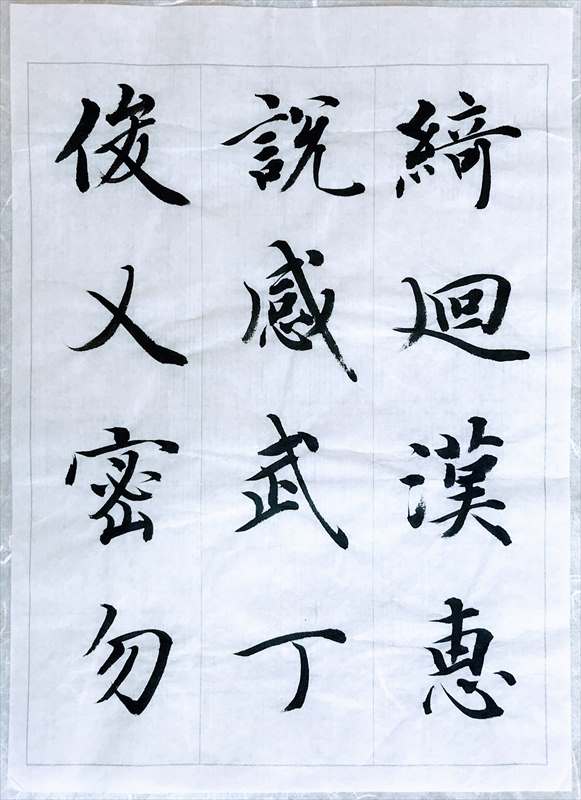 綺迴漢惠
說感武丁
俊乂密勿